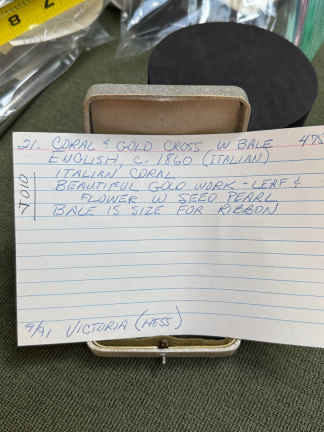 21. CORAL & GOLD CROSS W BALE 475
ENGLISH, C. 1860 (ITALIAN)
ITALIAN CORAL
BEAUTIFUL GOLD WORK - LEAF &
FLOWER W SEED PEARL
BALE IS SIZE FOR RIBBON
9/91 VICTORIA (HESS)
8